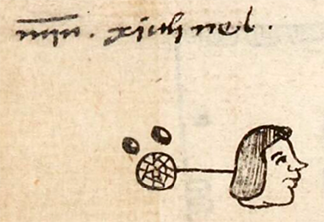 mīn. xiuhnel.